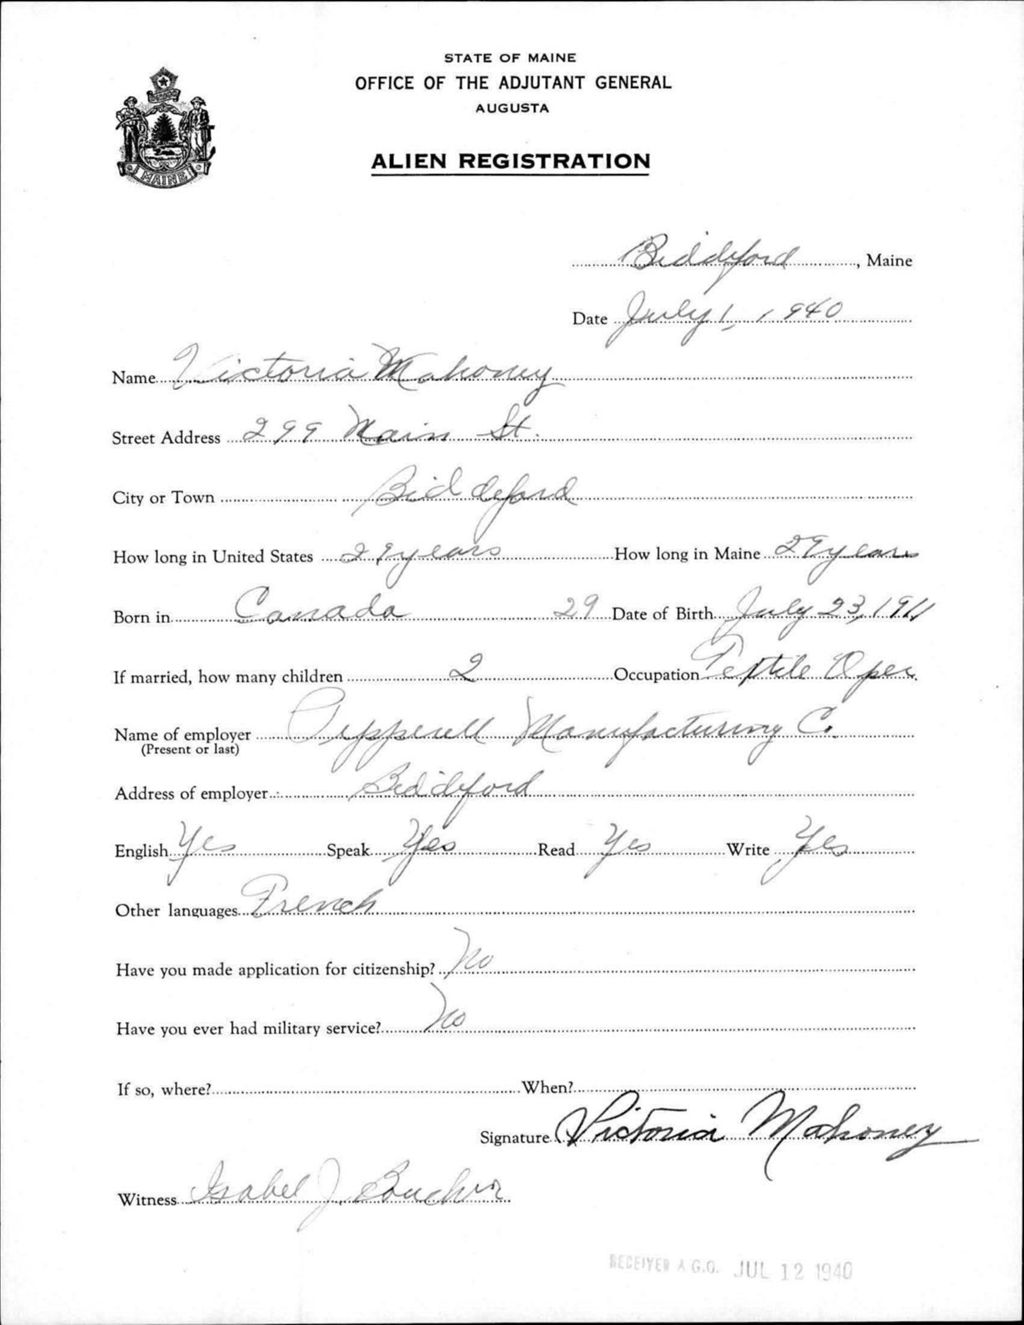 STATE OF MAINE
OFFICE OF THE ADJUTANT GENERAL
AUGUSTA
MAINE
ALIEN REGISTRATION
Biddeford, Maine
Date July 1, 1940
Name Victoria Mahoney
Street Address 299 Main St.
City or Town Biddeford
How long in United States 29 years How long in Maine 29 years
Born in Canada 29 Date of Birth July 23, 1911
If married, how many children 2 Occupation Textile Oper.
Name of employer Pepperell Manufacturing Co.
(Present or last)
Address of employer Biddeford
English Yes Speak Yes Read Yes Write Yes
Other languages French
Have you made application for citizenship? No
Have you ever had military service? No
If so, where? When?
Signature Victoria Mahoney
Witness Isabel J. Boucher
RECEIVED A.G.O. JUL 12 1940